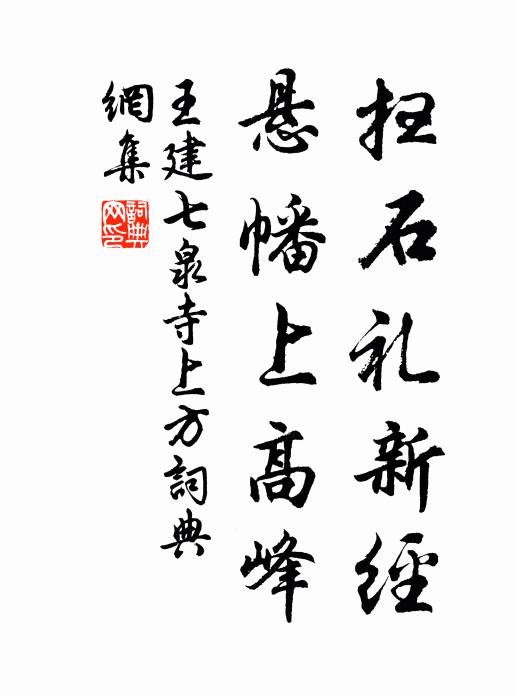 扫石礼新經
悬幡上高峰
王建七泉寺上方詞典
網集
詞典网印